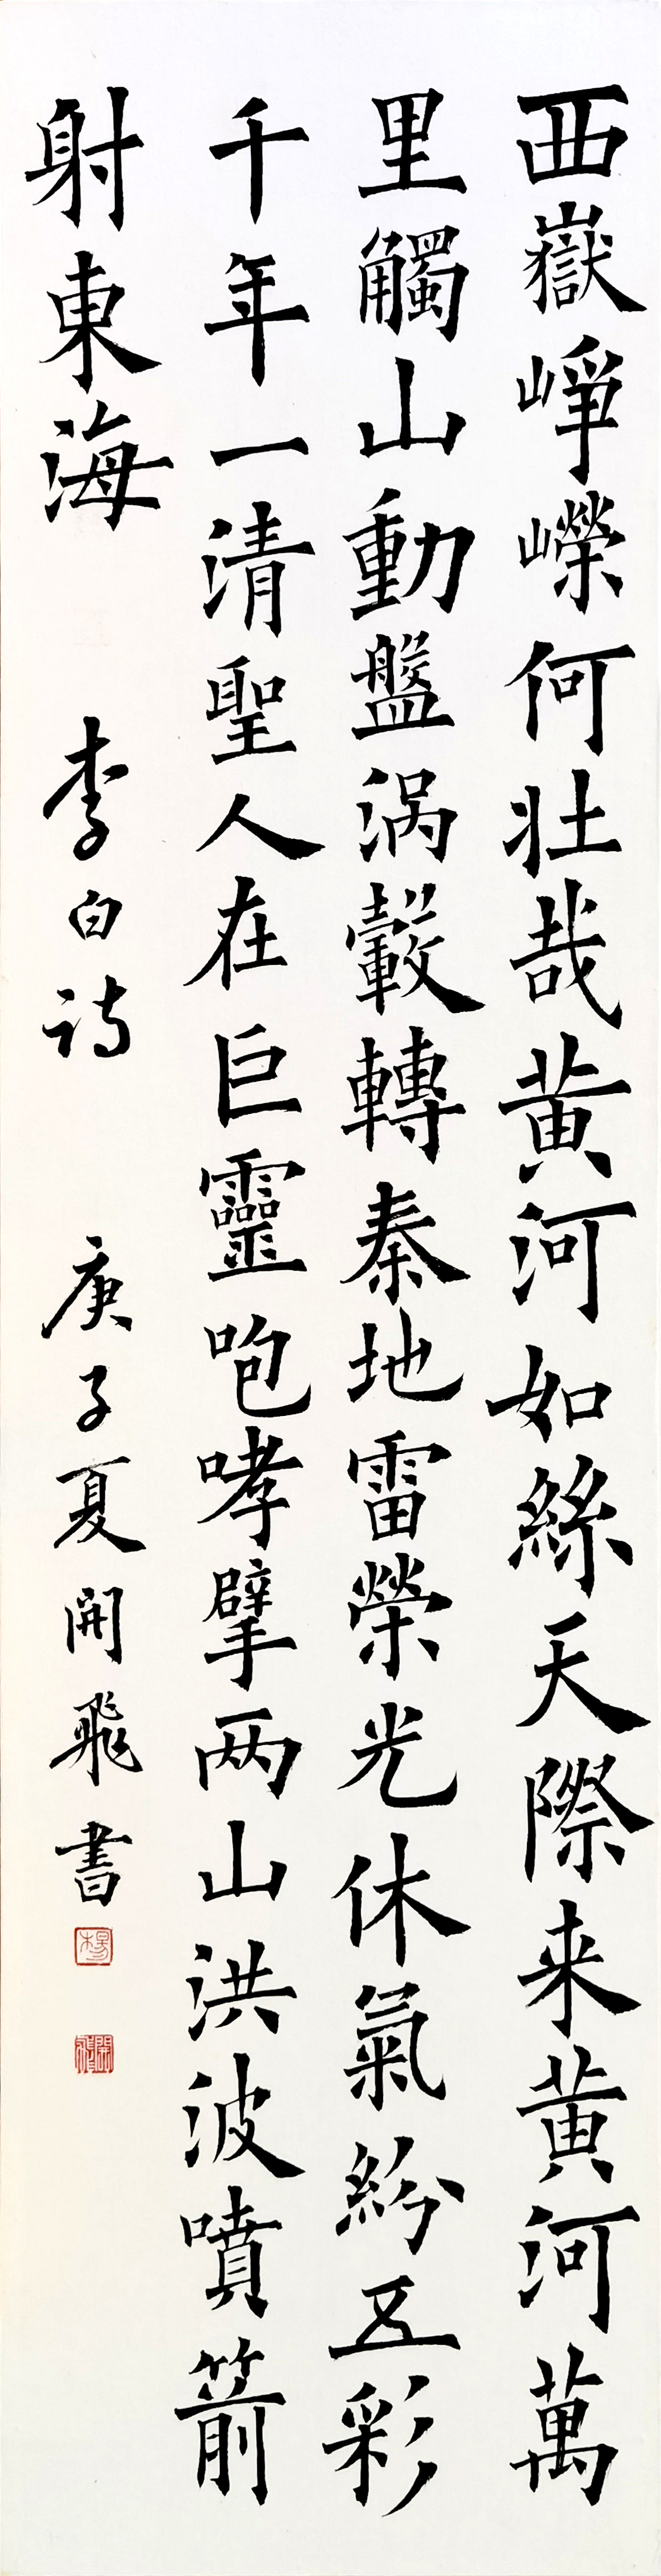 西嶽崢嶸何壯哉黃河如絲天際来黃河萬
里觸山動盤渦轂轉秦地雷榮光休氣紛五彩
千年一清聖人在巨靈咆哮擘两山洪波噴箭
射東海
李白诗
庚子夏開飛書
楊
開飛